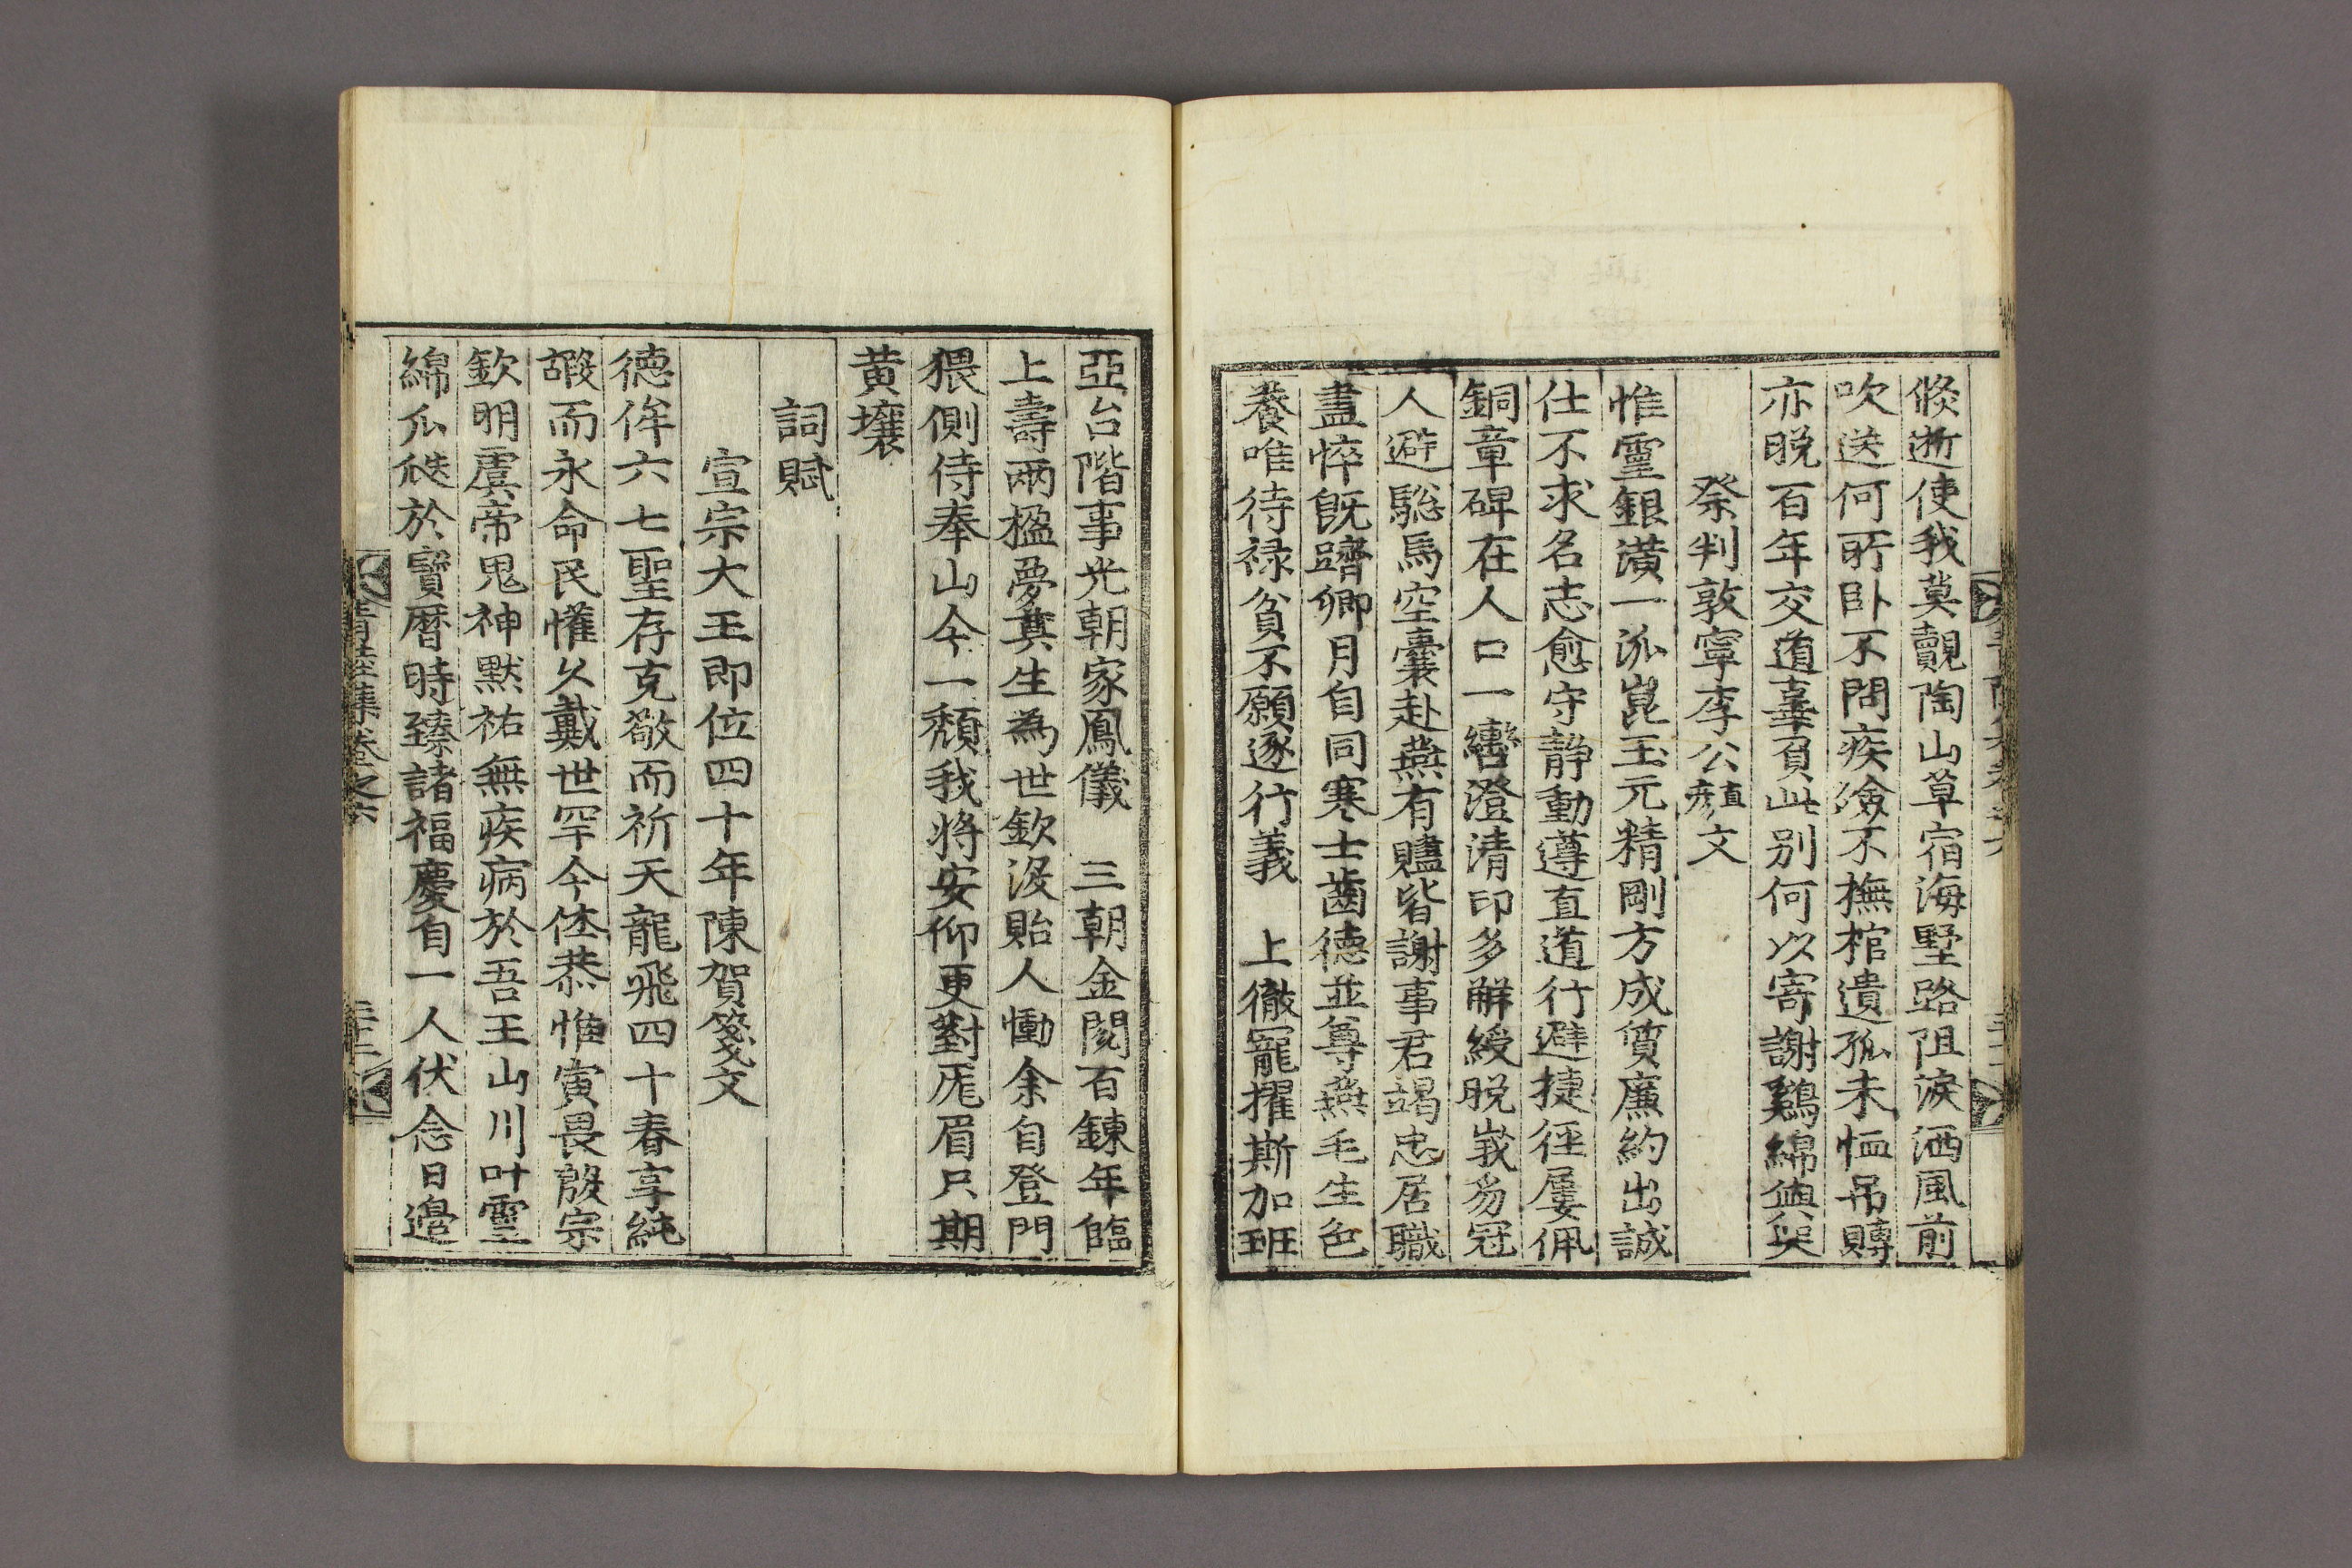 倐逝使我莫覿陶山草宿海墅路阻淚洒風前
吹送何所卧不問疾殮不撫棺遺孤未恤吊賻
亦晩百年交道辜負此别何以寄謝鷄綿與
祭判敦寧李公彦直文
惟靈銀潢一派崑玉元精剛方成質廉約出誠
仕不求名志愈守静動遵直道行避捷徑屢佩
銅章碑在人口一轡澄清印多解綬脫峩豸冠
人避驄馬空囊赴燕有贐皆謝事君竭忠居職
盡悴既躋卿月自同寒士齒德並尊燕毛生色
養唯待禄貧不願逐行義 上徹寵擢斯加班
亞台階事光朝家鳳儀 三朝金閱百鍊年臨
上壽兩楹夢奠生為世欽沒貽人慟余自登門
猥側侍奉山今一頹我將安仰更對厖眉只期
黄壤
詞賦
宣宗大王即位四十年陳賀箋文
德侔六七聖存克敬而祈天龍飛四十春享純
嘏而永命民懽久戴世罕今侄恭惟寅畏殷宗
欽明虞帝鬼神黙祐無疾病於吾王山川叶靈
綿瓜瓞於寶曆時臻諸福慶自一人伏念日邊
青陸集卷之六